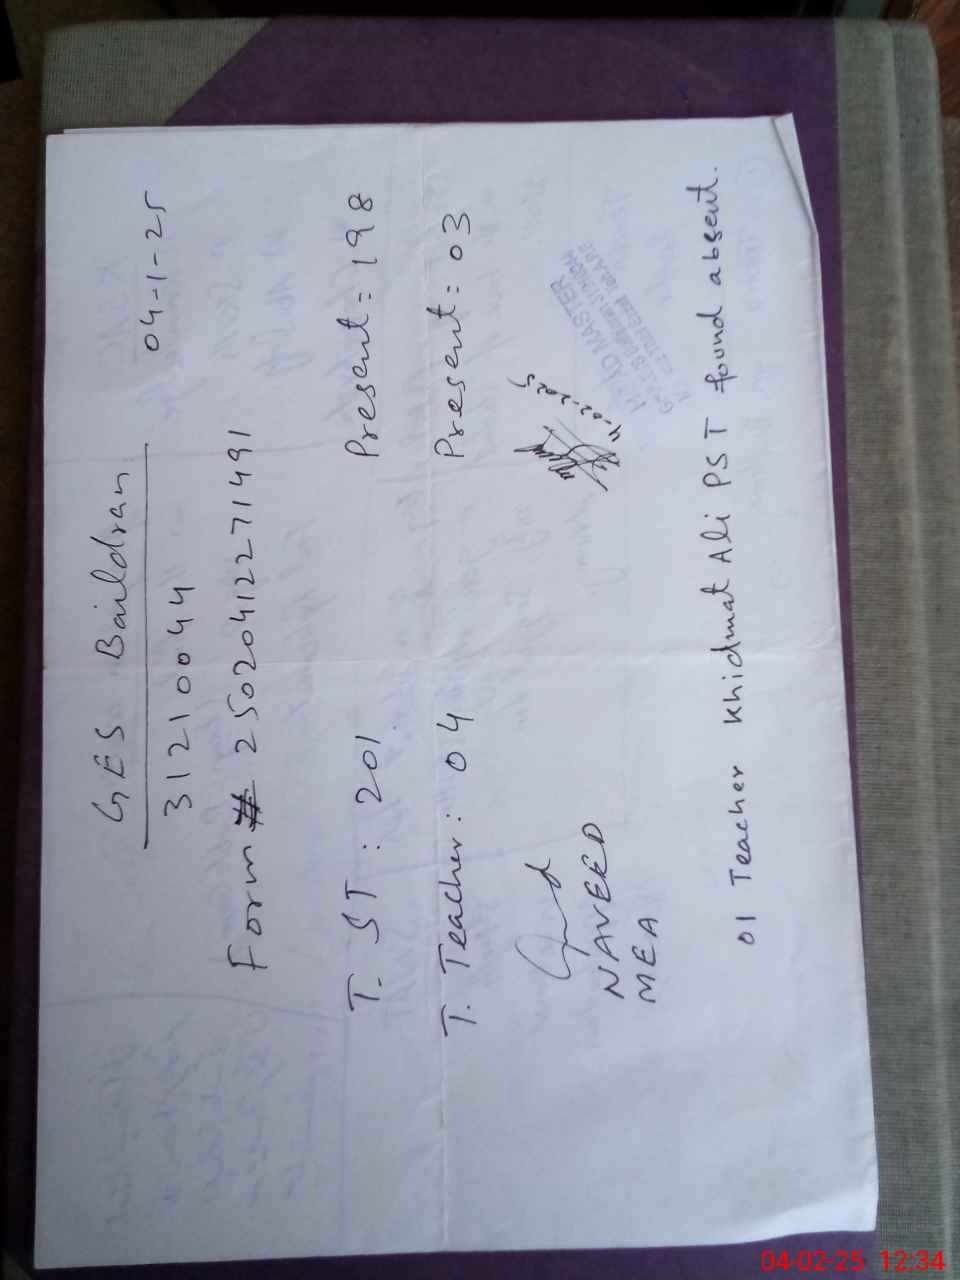 GES Baildran
04-1-25
31210044
Form # 25020412271491
T. ST : 201 Present = 198
T. Teacher : 04 Present : 03
4-02-2025
NAVEED
MEA
MASTER
01 Teacher Khidmat Ali PST found absent.
04-02-25 12:34